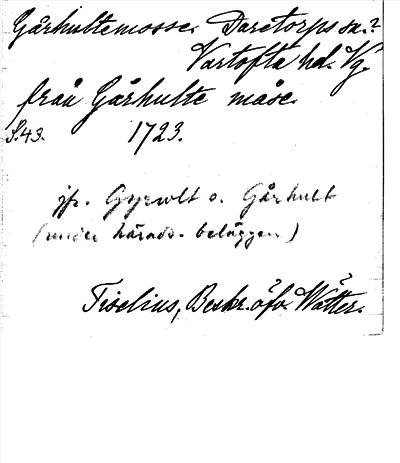 Gårhultemosse. Daretorps sn.?
Vartofta hd. Vg.
från Gårhulte måse
S.43. 1723.
jfr. Gyrwlt o. Gårhult
(under härads-beläggen)
Tiselius, Beskr. öfv. Wätter.